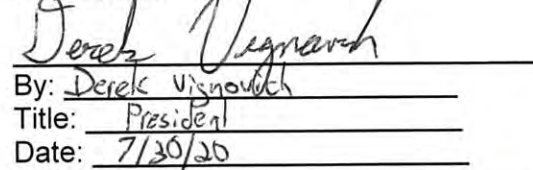 Derek Vignovich
By: Derek Vignovich
Title: President
Date: 7/30/20